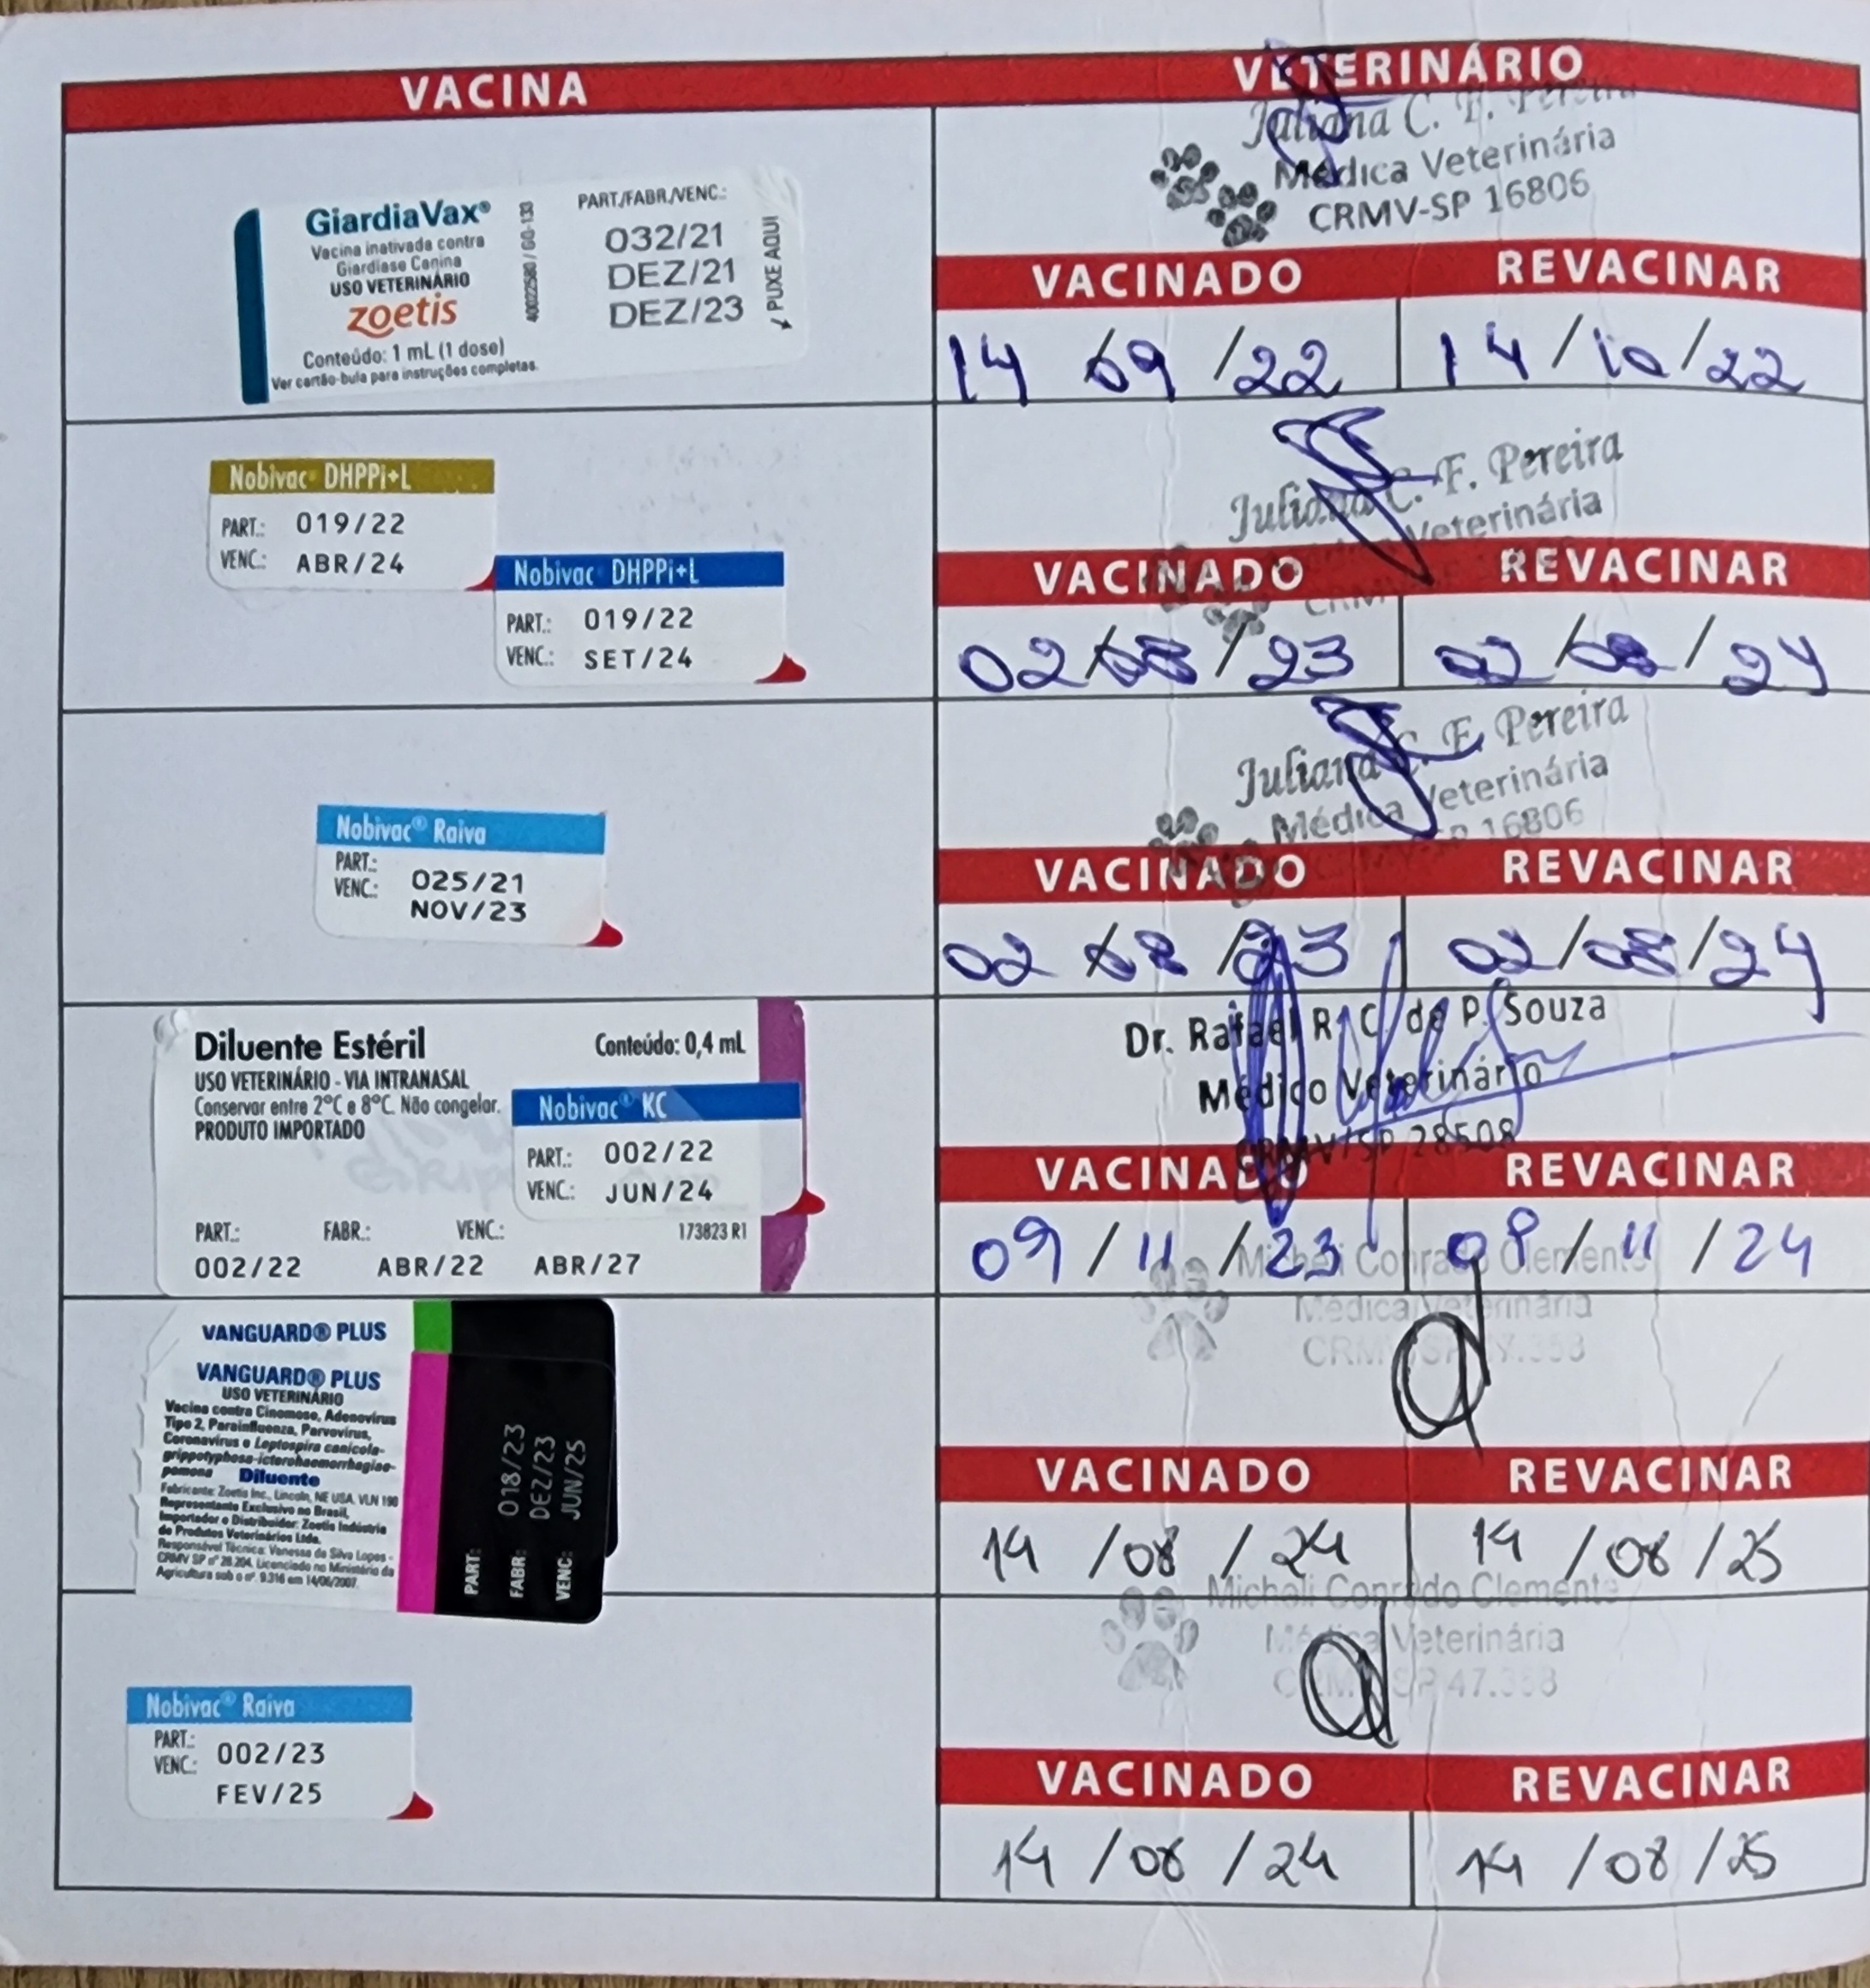 VACINA
VETERINÁRIO
GiardiaVax®
Vacina inativada contra
Giardíase Canina
USO VETERINÁRIO
zoetis
Conteúdo: 1 mL (1 dose)
Ver cartão-bula para instruções completas.
40022580 / GG-133
PART./FABR./VENC.:
032/21
DEZ/21
DEZ/23
PUXE AQUI
Juliana C. F. Pereira
Médica Veterinária
CRMV-SP 16806
VACINADO REVACINAR
14 09 /22 14/10/22
Nobivac DHPPi+L
PART.: 019/22
VENC.: ABR/24
Nobivac DHPPi+L
PART.: 019/22
VENC.: SET/24
Juliana C. F. Pereira
Veterinária
VACINADO REVACINAR
02/08/23 02/08/24
Nobivac® Raiva
PART.:
VENC.:
025/21
NOV/23
Juliana C. F. Pereira
Médica Veterinária
16806
VACINADO REVACINAR
02 08 /23 02/08/24
Diluente Estéril
Conteúdo: 0,4 mL
USO VETERINÁRIO - VIA INTRANASAL
Conservar entre 2°C e 8°C. Não congelar.
PRODUTO IMPORTADO
Nobivac® KC
PART.: 002/22
VENC.: JUN/24
PART.: FABR.: VENC.: 173823 R1
002/22 ABR/22 ABR/27
Dr. Rafael R. C. de P. Souza
Médico Veterinário
CRMV/SP 28508
VACINADO REVACINAR
09/11/23 09/11/24
VANGUARD® PLUS
VANGUARD® PLUS
USO VETERINÁRIO
Vacina contra Cinomose, Adenovírus
Tipo 2, Parainfluenza, Parvovírus,
Coronavírus e Leptospira canicola-
grippotyphosa-icterohaemorrhagiae-
pomona Diluente
Fabricante: Zoetis Inc., Lincoln, NE USA. VLN 190
Representante Exclusivo no Brasil,
Importador e Distribuidor: Zoetis Indústria
de Produtos Veterinários Ltda.
Responsável Técnica: Vanessa da Silva Lopes -
CRMV SP nº 28.204. Licenciado no Ministério da
Agricultura sob o nº. 9.316 em 14/06/2007.
PART: 018/23
FABR: DEZ/23
VENC: JUN/25
Micheli Conrado Clemente
Médica Veterinária
VACINADO REVACINAR
14/08/24 14/08/25
Nobivac® Raiva
PART.:
VENC.:
002/23
FEV/25
Micheli Conrado Clemente
Médica Veterinária
47.358
VACINADO REVACINAR
14/08/24 14/08/25